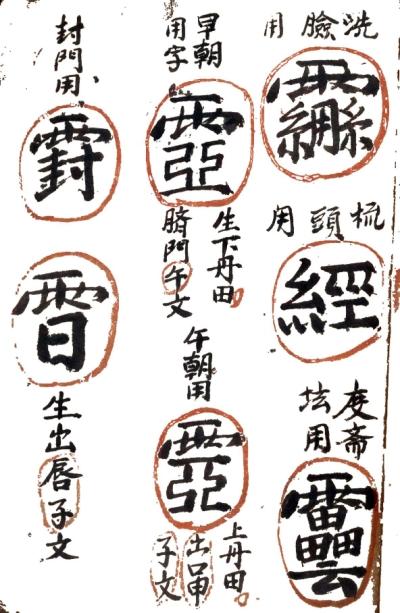 洗臉用
梳頭用
經
度斋
坛用
早朝
用字
生下丹田
臍門午文
午朝用
上丹田
出
子文
封門用
生出唇子文